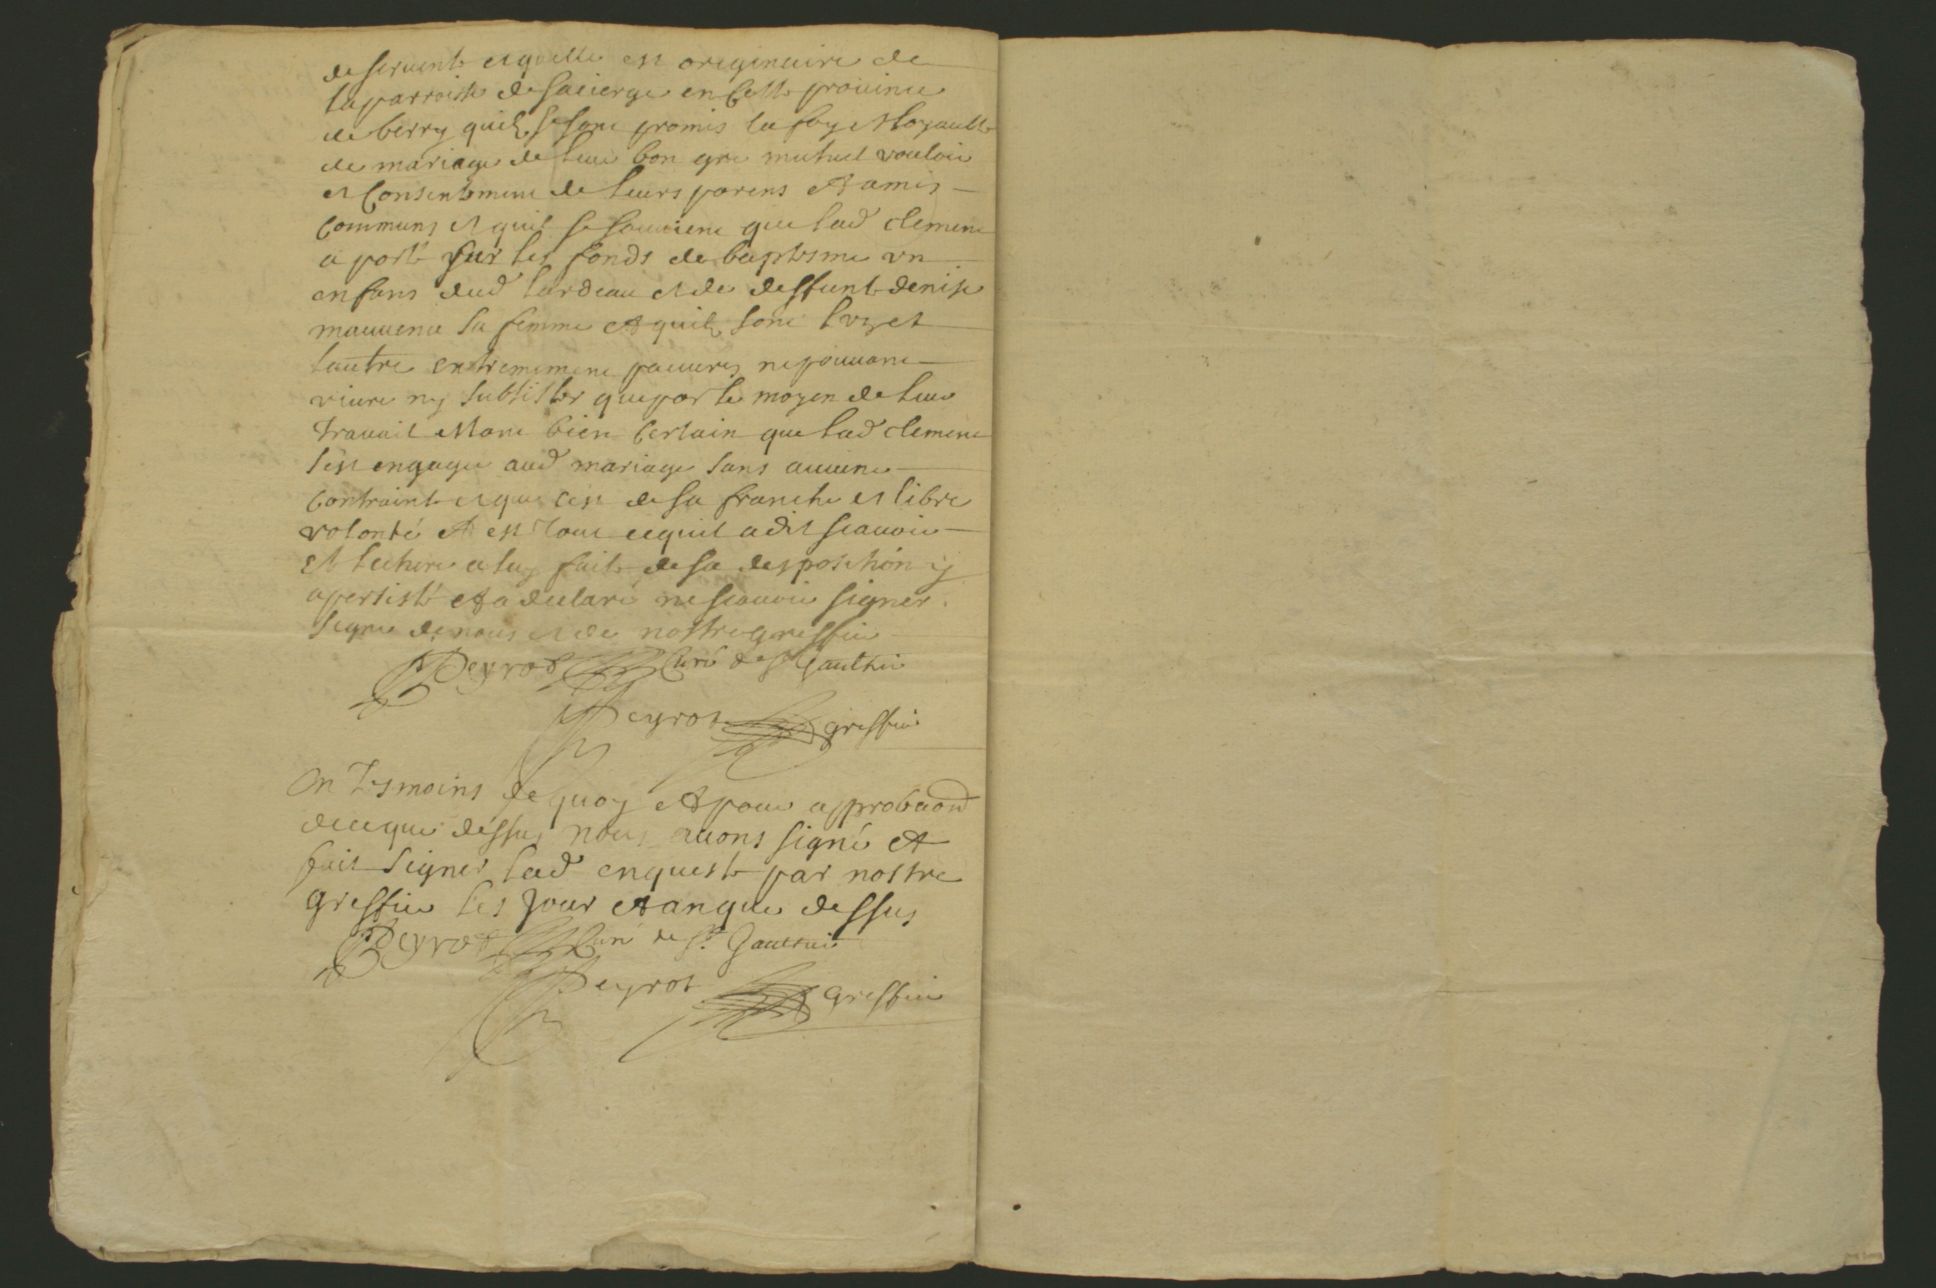 de servente et quelle est originaire de
la parroisse de sacierge en cette province
de berry quilz se sont promis la foy et loyaulte
de mariage de leur bon gre mutuel vouloir
et consentement de leurs parens et amis
communs et quil se souvient que lad clement
a porté sur les fonds de baptesme un
enfans dud lardeau et de deffunte denise
mauvenu sa femme et quilz sont lun et
lautre extremement pauvres ne pouvant
vivre ny subsister que par le moyen de leur
travail estant bien certain que lad clement
sest engagee aud mariage sans aucune
contrainte et que cest de sa franche et libre
volonté et est tout cequil a dit scavoir
et lecture a luy faite de sa desposition y
a persisté et a declaré ne scavoir signer
signé de nous et de nostre greffier
Peyrot Curé de St Gaultier
Peyrot greffier
En tesmoins de quoy et pour approbaon
de ce que dessus nous avons signé et
fait signer lad enqueste par nostre
greffier les jour et an que dessus
Peyrot Curé de St. Gaultier
Peyrot greffier